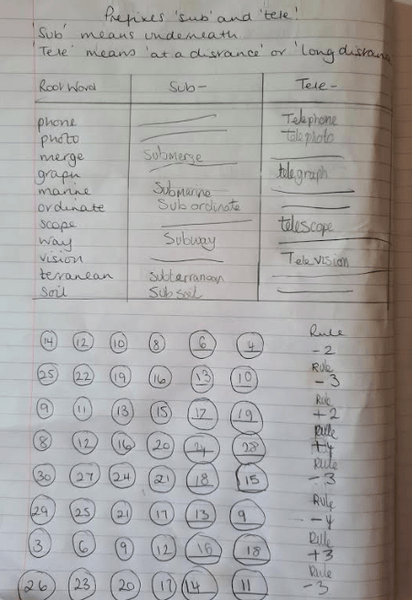 Prefixes 'sub' and 'tele'
'Sub' means underneath
'Tele' means 'at a distance' or 'long distance
Root Word Sub- Tele-
phone Telephone
photo telephoto
merge Submerge
graph telegraph
marine Submarine
ordinate Subordinate
scope telescope
way Subway
vision Television
terranean Subterranean
soil Subsoil
Rule
14 12 10 8 6 4 -2
Rule
25 22 19 16 13 10 -3
Rule
9 11 13 15 17 19 +2
Rule
8 12 16 20 24 28 +4
Rule
30 27 24 21 18 15 -3
Rule
29 25 21 17 13 9 -4
Rule
3 6 9 12 18 +3
Rule
26 23 20 17 14 11 -3